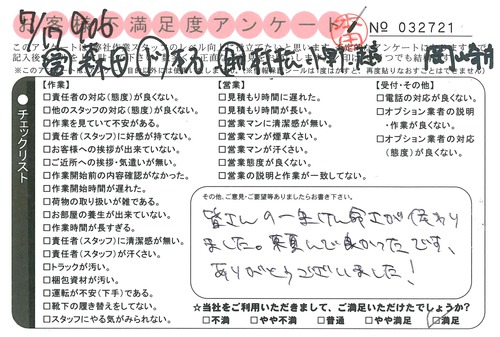 お客様不満足度アンケート
№ 032721
7/17 906
【作業】
□責任者の対応(態度)が良くない。
□他のスタッフの対応(態度)が良くない。
□作業を見ていて安心がある。
□責任者(スタッフ)に好感が持てない。
□お客様への挨拶が出来ていない。
□ご近所への挨拶・気遣いが無い。
□作業開始前の内容確認がなかった。
□作業開始時間が遅れた。
□荷物の取り扱いが雑である。
□お部屋の養生が出来ていない。
□作業時間が長すぎる。
□責任者(スタッフ)に清潔感が無い。
□責任者(スタッフ)が汗くさい。
□トラックが汚い。
□梱包資材が汚い。
□運転が不安(下手)である。
□靴下の履き替えをしてない。
□スタッフにやる気がみられない。
【営業】
□見積もり時間に遅れた。
□見積もり時間が長い。
□営業マンに清潔感が無い。
□営業マンが煙草くさい。
□営業マンが汗くさい。
□営業態度が良くない。
□営業の説明と作業が一致してない。
【受付・その他】
□電話の対応が良くない。
□オプション業者の説明
・作業が良くない。
□オプション業者の対応
(態度)が良くない。
チェックリスト
その他、ご意見・ご要望等ありましたらお書き下さい。
皆さんの一生けん命さが伝わり
ました。頼んで良かったです、
ありがとうございました!
☆当社をご利用いただきまして、ご満足いただけたでしょうか?
□不満 □やや不満 □普通 □やや満足 □満足